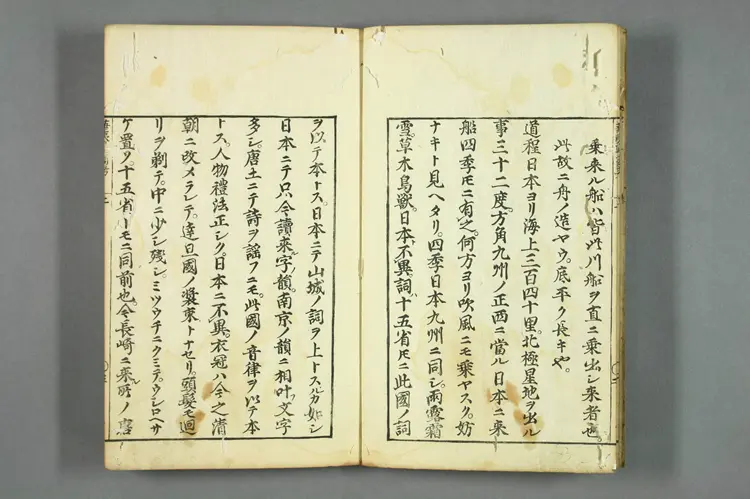 乗来ル船ハ皆此川船ヲ直ニ乗出シ来者也。
此故ニ舟ノ造ヤウ。底平ク長キヤ。
道程日本ヨリ海上三百四十里。北極星地ヲ出ル
事三十二度。方角九州ノ正西ニ當ル日本ニ来
船四季𪜈ニ有之。何方ヨリ吹風ニモ乗ヤスク。妨
ナキト見ヘタリ。四季日本九州ニ同シ。雨露霜
雪。草木鳥獣。日本ニ不異詞。十五省𪜈ニ此國ノ詞
ヲ以テ本トス。日本ニテ山城ノ詞ヲ上トスルカ如シ
日本ニテ只今讀来ル字ノ韻。南京ノ韻ニ相叶フ文字
多シ。唐土ニテ詩ヲ謡フニモ。此國ノ音律ヲ以テ本
トス。人物禮法正シク。日本ニ不異。衣冠ハ今之清
朝ニ改メラレテ。達旦國ノ裝束トナセリ。頭髪モ廻
リヲ剃テ。中ニ少シ残シ。ミツウチニクミテ。ウシロヘサ
ケ置ク。十五省トモニ同前也。今長崎ニ来ル所ノ唐